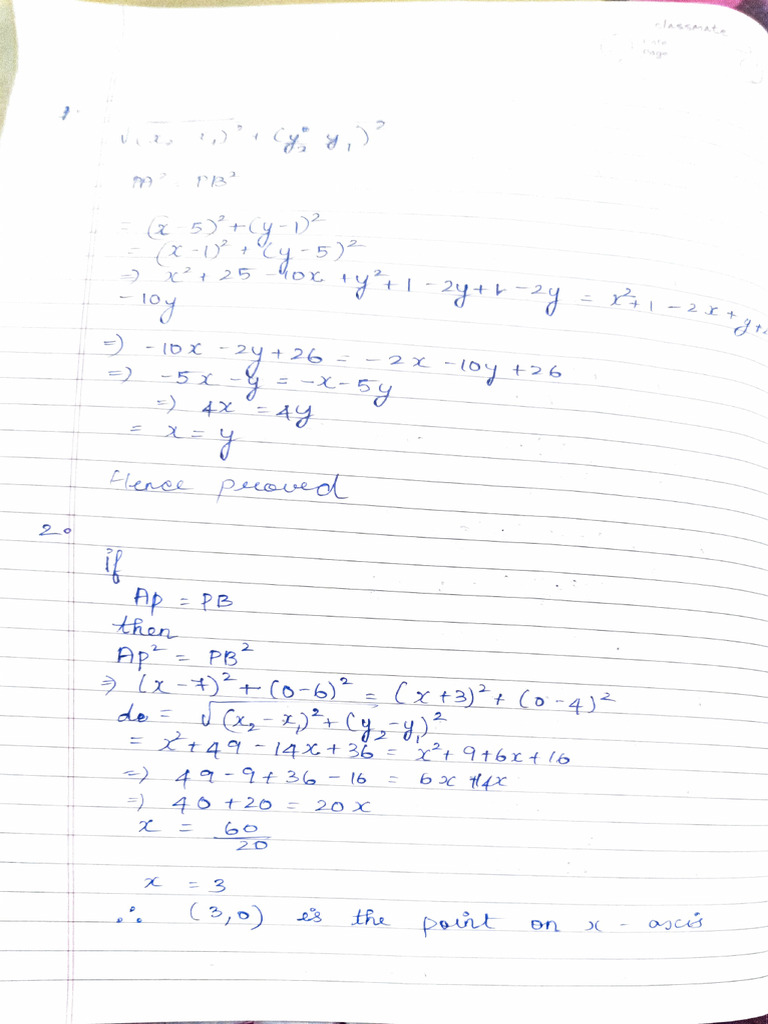 classmate
Date
Page
1.
√(x₂ - x₁)² + (y₂ - y₁)²
PA² = PB²
= (x - 5)² + (y - 1)²
= (x - 1)² + (y - 5)²
⇒ x² + 25 - 10x + y² + 1 - 2y + 1 - 2y = x² + 1 - 2x + y +
- 10y
⇒ -10x - 2y + 26 = -2x - 10y + 26
⇒ -5x - y = -x - 5y
⇒ 4x = 4y
= x = y
Hence proved
2.
if
AP = PB
then
AP² = PB²
⇒ (x - 7)² + (0 - 6)² = (x + 3)² + (0 - 4)²
de = √(x₂ - x₁)² + (y₂ - y₁)²
= x² + 49 - 14x + 36 = x² + 9 + 6x + 16
⇒ 49 - 9 + 36 - 16 = 6x + 14x
⇒ 40 + 20 = 20x
x = 60
20
x = 3
∴ (3,0) is the point on x - axis